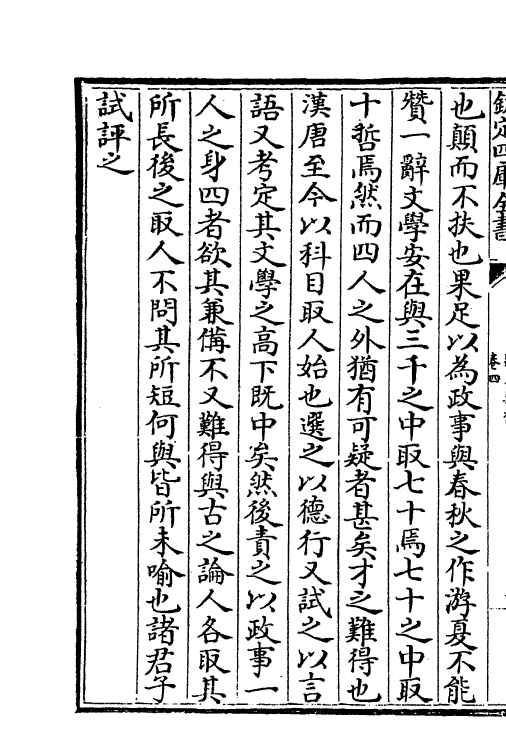 欽定四庫全書
卷四
也顛而不扶也果足以為政事與春秋之作游夏不能
贊一辭文學安在與三千之中取七十焉七十之中取
十哲焉然而四人之外猶有可疑者甚矣才之難得也
漢唐至今以科目取人始也選之以德行又試之以言
語又考定其文學之高下既中矣然後責之以政事一
人之身四者欲其兼備不又難得與古之論人各取其
所長後之取人不問其所短何與皆所未喻也諸君子
試評之